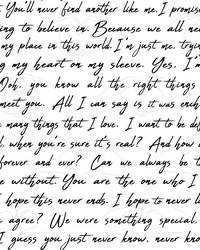 You'll never find another like me. I promise
ing to believe in. Because we all need
my place in this world. I'm just me, trying
g my heart on my sleeve. Yes, I'm
Ooh, you know all the right things
meet you. All I can say is it was ench
many things that I love. I want to be def
, when you're sure it's real? And how d
forever and ever? Can we always be th
e without. You are the one who I
hope this never ends. I hope to never l
agree? We were something special,
I guess you just never know, never know